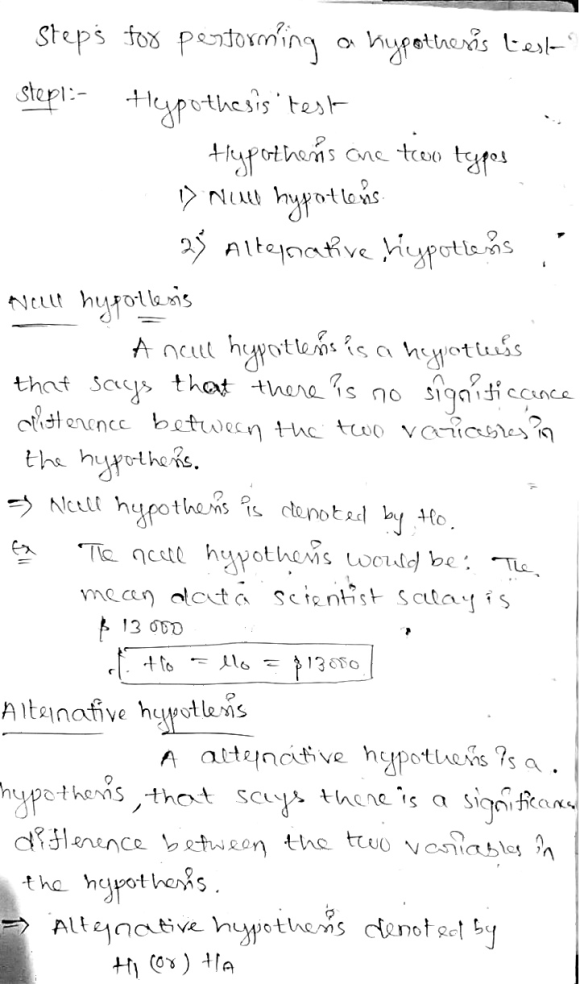 Steps for performing a hypothesis test
Step1:- Hypothesis test
Hypothesis are two types
1) Null hypothesis
2) Alternative hypothesis
Null hypothesis
A null hypothesis is a hypothesis
that says that there is no significance
difference between the two variables in
the hypothesis.
⇒ Null hypothesis is denoted by H0.
Ex The null hypothesis would be: The
mean data scientist salary is
$ 13000
H0 = μ0 = $13000
Alternative hypothesis
A alternative hypothesis is a
hypothesis, that says there is a significance
difference between the two variables in
the hypothesis.
⇒ Alternative hypothesis denoted by
H1 (or) HA